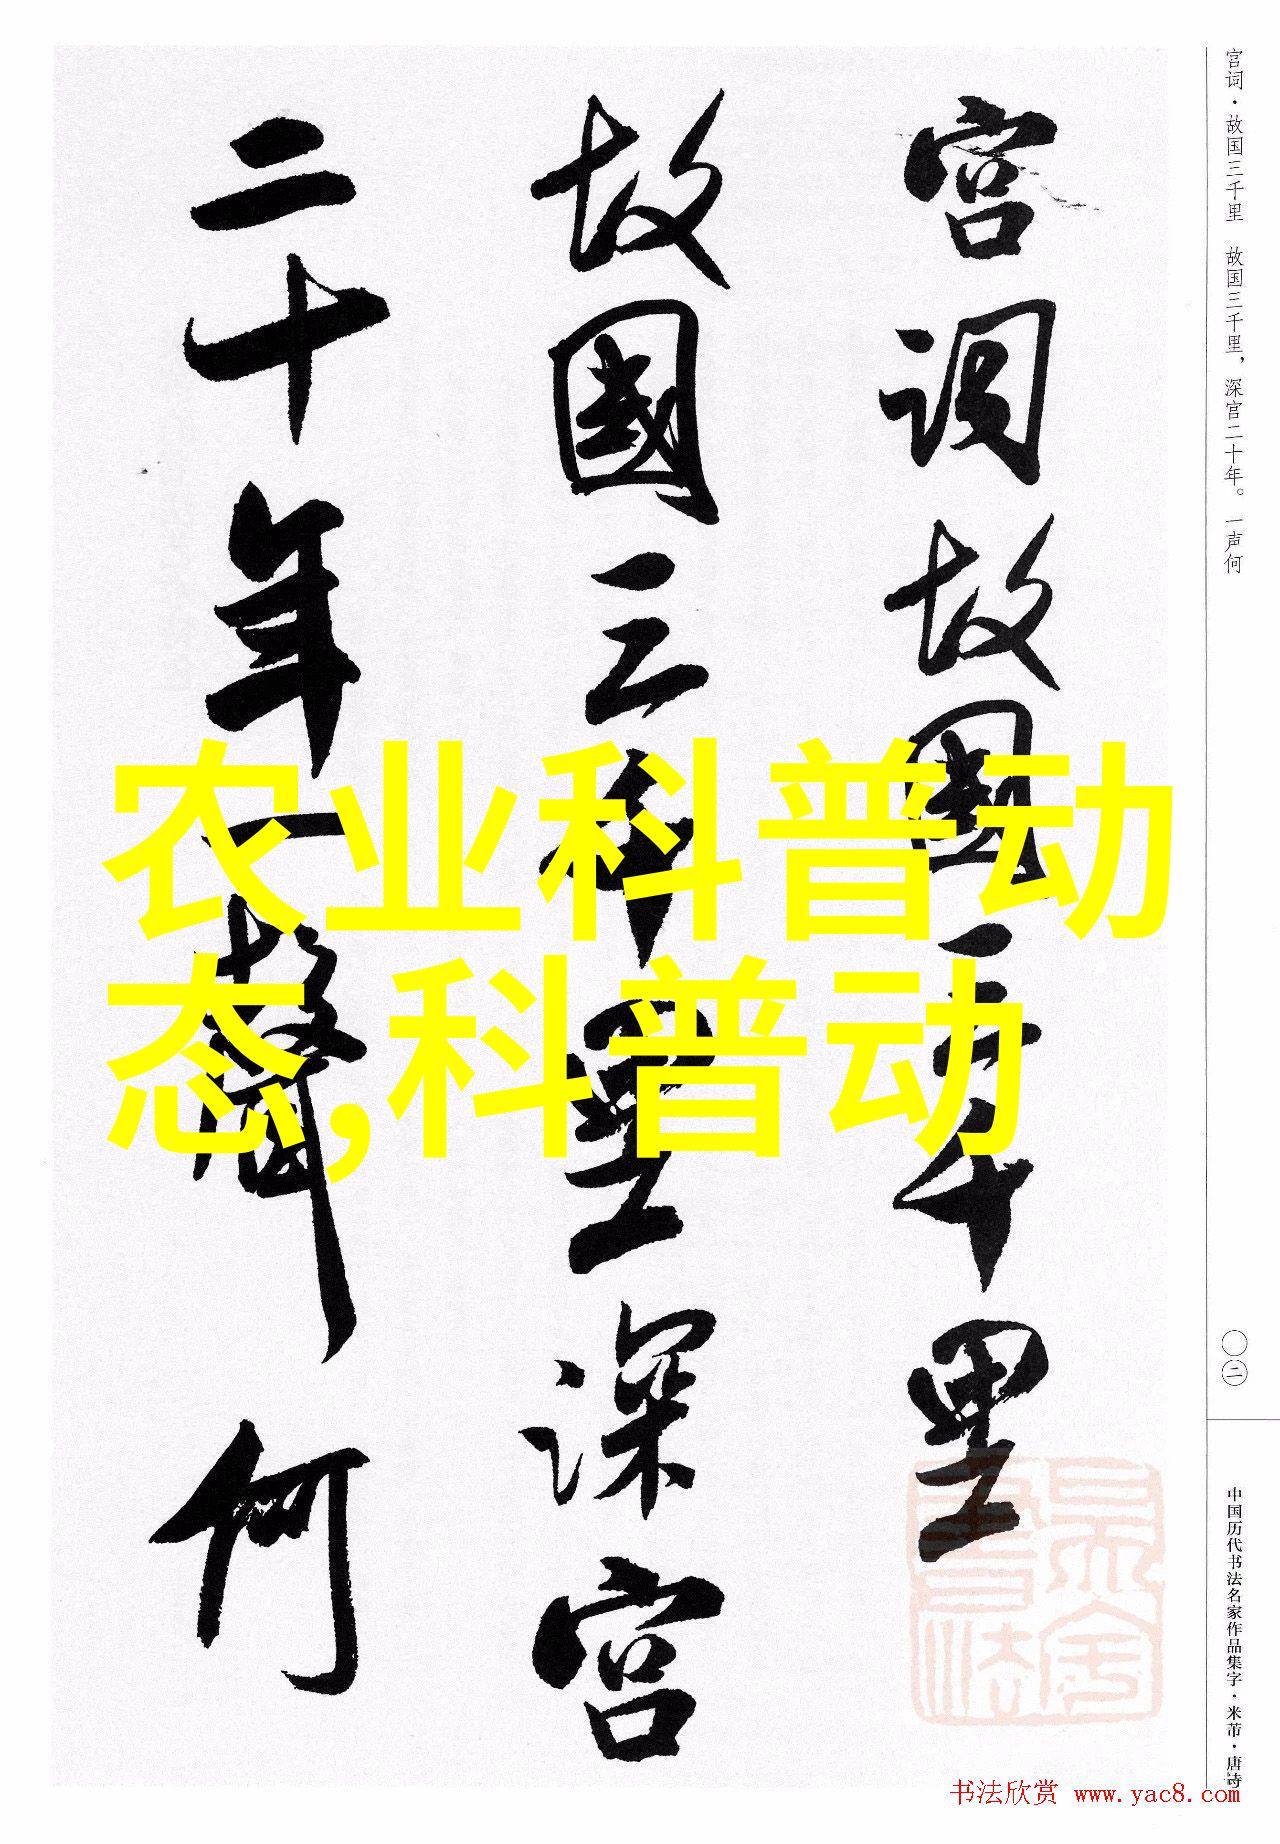 宫词·故国三千里 故国三千里，深宫二十年。一声何
宫词故國三千里
故國三千里深宫
二十年一聲何
农业科普动
态,科普动
〇二
中国历代书法名家作品集字·米芾·唐诗
书法欣赏 www.yac8.com